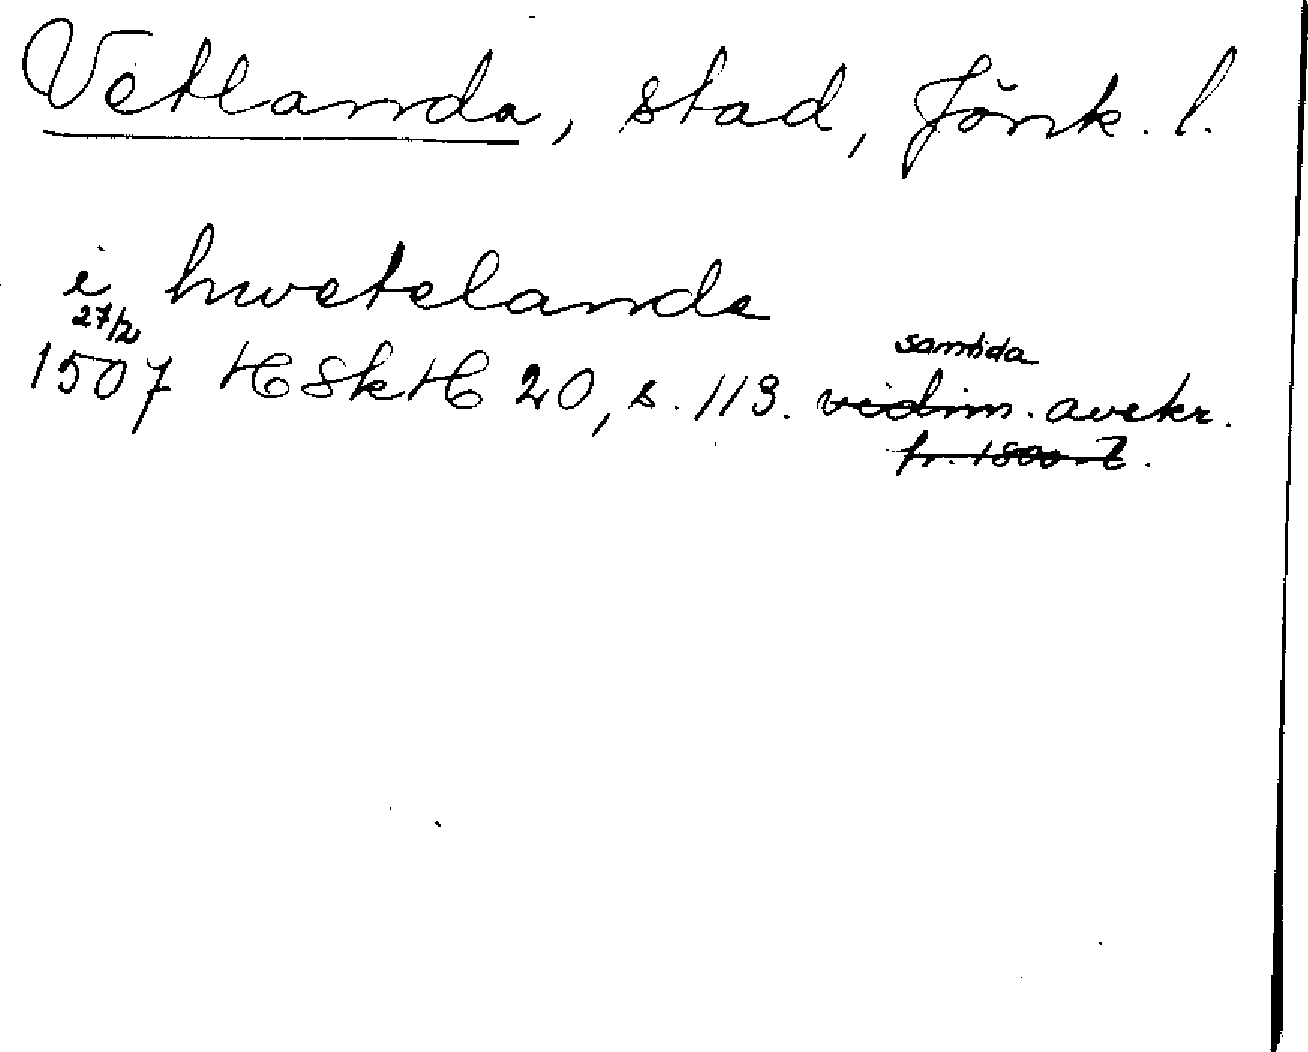 Vetlanda, stad, Jönk. l.
i hwetelande
27/2
1507 HSkH 20, s. 113. vidim. avskr.
samtida
fr. 1800-t.